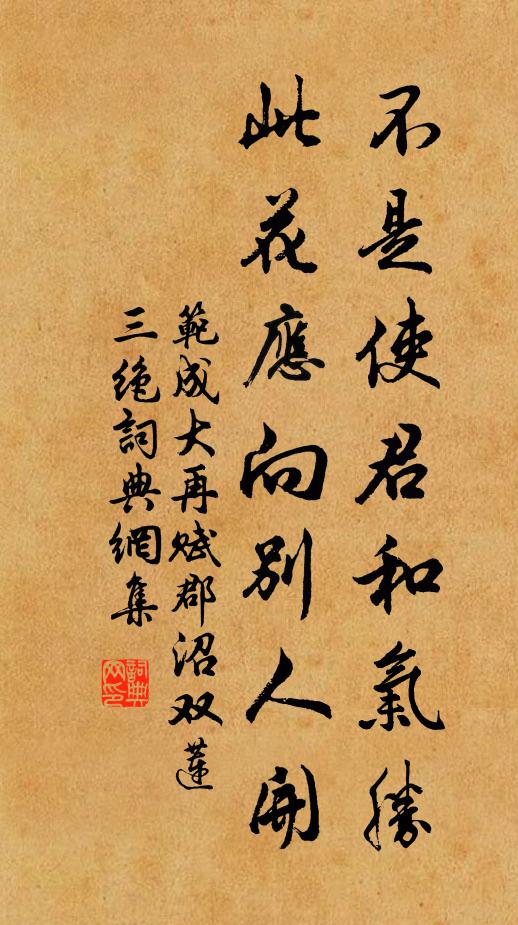 不是使君和氣勝
此花應向別人開
範成大再賦郡沼双蓮
三絶詞典網集
詞典
网印